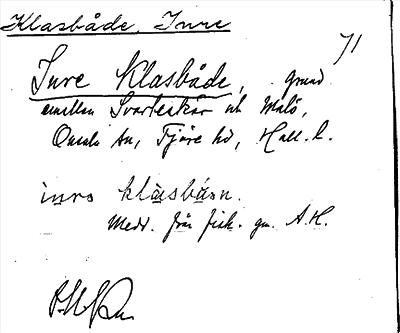 Klasbåde, Inre
71
Inre Klasbåde, grund
emellan Svarteskär och Malö,
Onsala sn, Fjäre hd, Hall. l.
inrə klàsbå̀ən.
Medd. från fisk. gm. A.H.